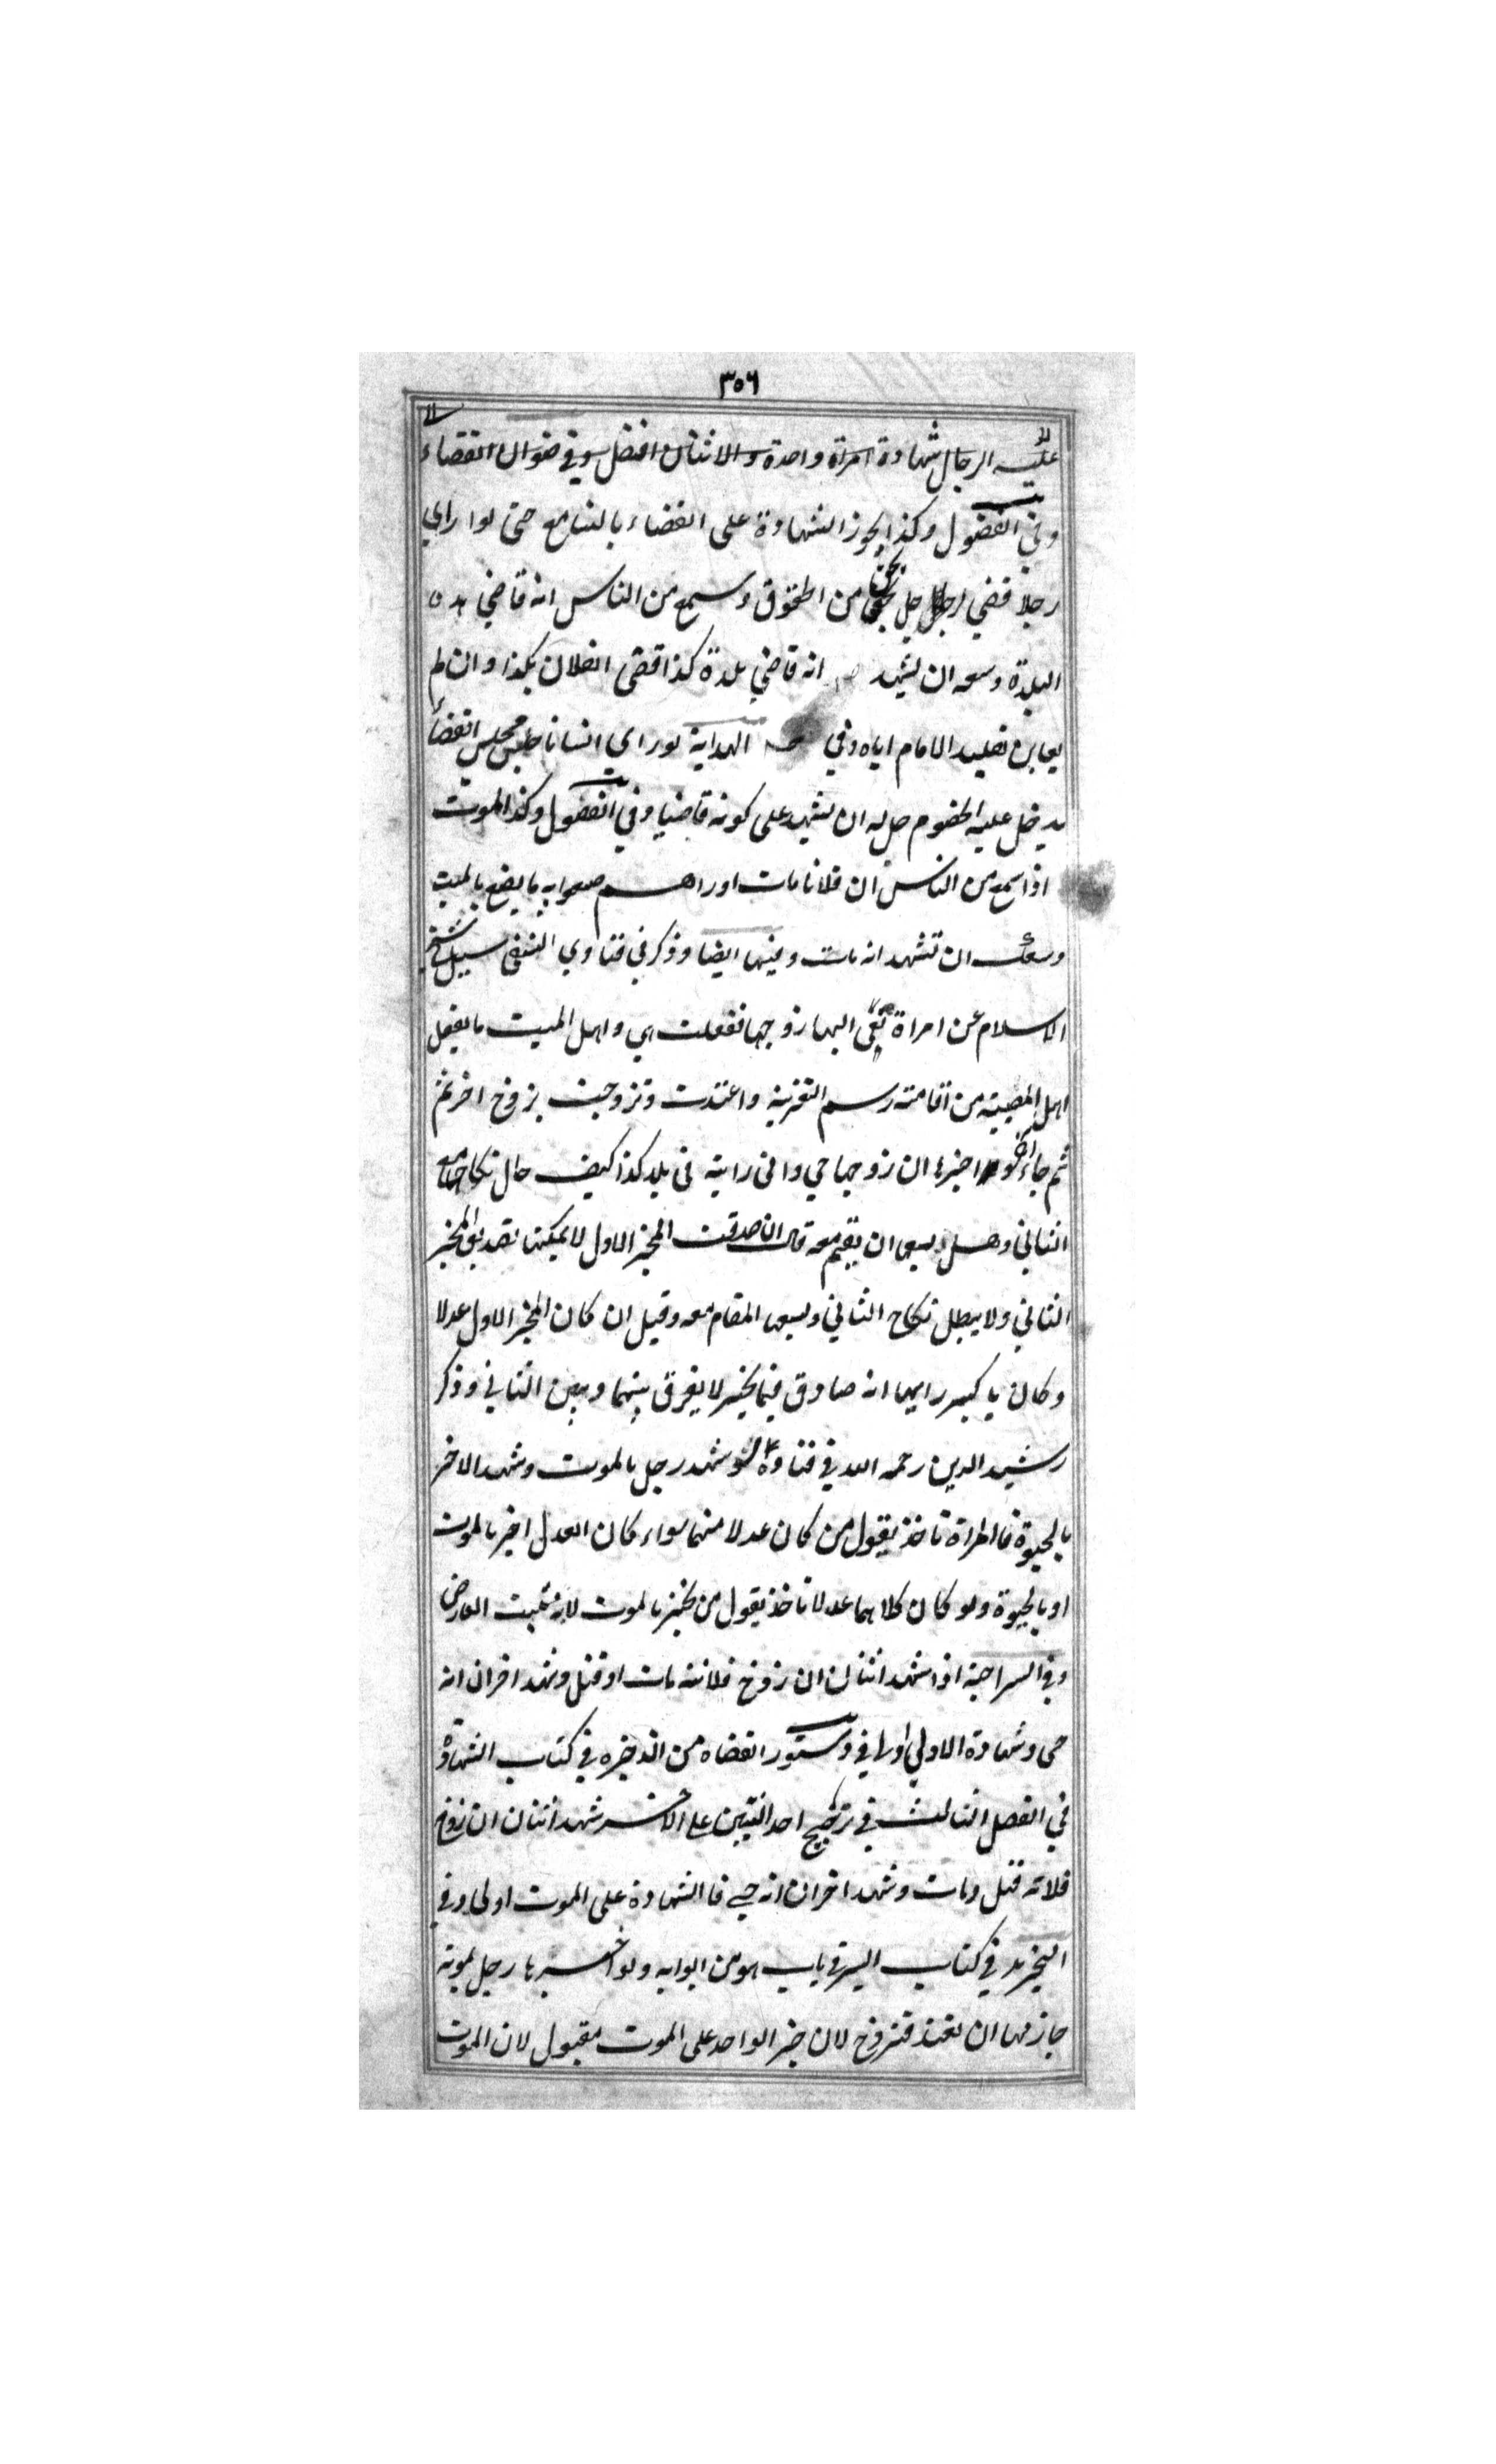 ٣٥٦
عليه الرجال شهادة امراة واحدة والاثنان افضل وفي صنوان القضاء
وفي الفصول وكذا يجوز الشهادة على القضاء بالتسامع حتى لو راي
رجلا قضي لرجل بحق من الحقوق وسمع من الناس انه قاضي هذه
البلدة وسعه ان يشهد انه قاضي بلدة كذا قضى لفلان بكذا وان لم
يعاين تقليد الامام اياه وفي الهداية لو راي انسانا جلس مجلس القضاء
يدخل عليه الخصوم حل له ان يشهد على كونه قاضيا وفي الفصول وكذا الموت
اذا سمع من الناس ان فلانا مات او راهم صنعوا به ما يصنع بالميت
وسعك ان تشهد انه مات وفيها ايضا وذكر في فتاوي النسفى سيل شيخ
الاسلام عن امراة نعى اليها زوجها ففعلت هي واهل الميت ما يفعل
اهل المصيبة من اقامته رسم التعزية واعتدت وتزوجت بزوج اخر ثم
ثم جاء اخر واخبرها ان زوجها حي واني رايته في بلد كذا كيف حال نكاحها مع
الثاني وهل يسعها ان يقيم معه قال ان صدقت المخبر الاول لا يمكنها تصديق المخبر
الثاني ولا يبطل نكاح الثاني ويسعها المقام معه وقيل ان كان المخبر الاول عدلا
وكان باكبر رايها انه صادق فيما يخبر لا يفرق بينهما وبين الثاني وذكر
رشيد الدين رحمه الله في فتاواه لو شهد رجل بالموت وشهد الاخر
بالحيوة فالمراة تاخذ بقول من كان عدلا منهما سواء كان العدل اخبر بالموت
او بالحيوة ولو كان كلاهما عدلا تاخذ بقول من يخبر بالموت لانه يثبت العارض
وفي السراجية اذا شهد اثنان ان زوج فلانة مات او قتل وشهد اخران انه
حى وشهادة الاولي اولي وفي دستور القضاة من الذخيره في كتاب الشهادة
في الفصل الثالث في ترجيح احد البينتين على الاخر شهد اثنان ان زوج
فلانة قتل ومات وشهد اخران انه حي فالشهادة على الموت اولى وفي
التجريد في كتاب السير في باب هو من ابوابه ولو اخبرها رجل بموته
جاز لها ان تعتد فتزوج لان خبر الواحد على الموت مقبول لان الموت